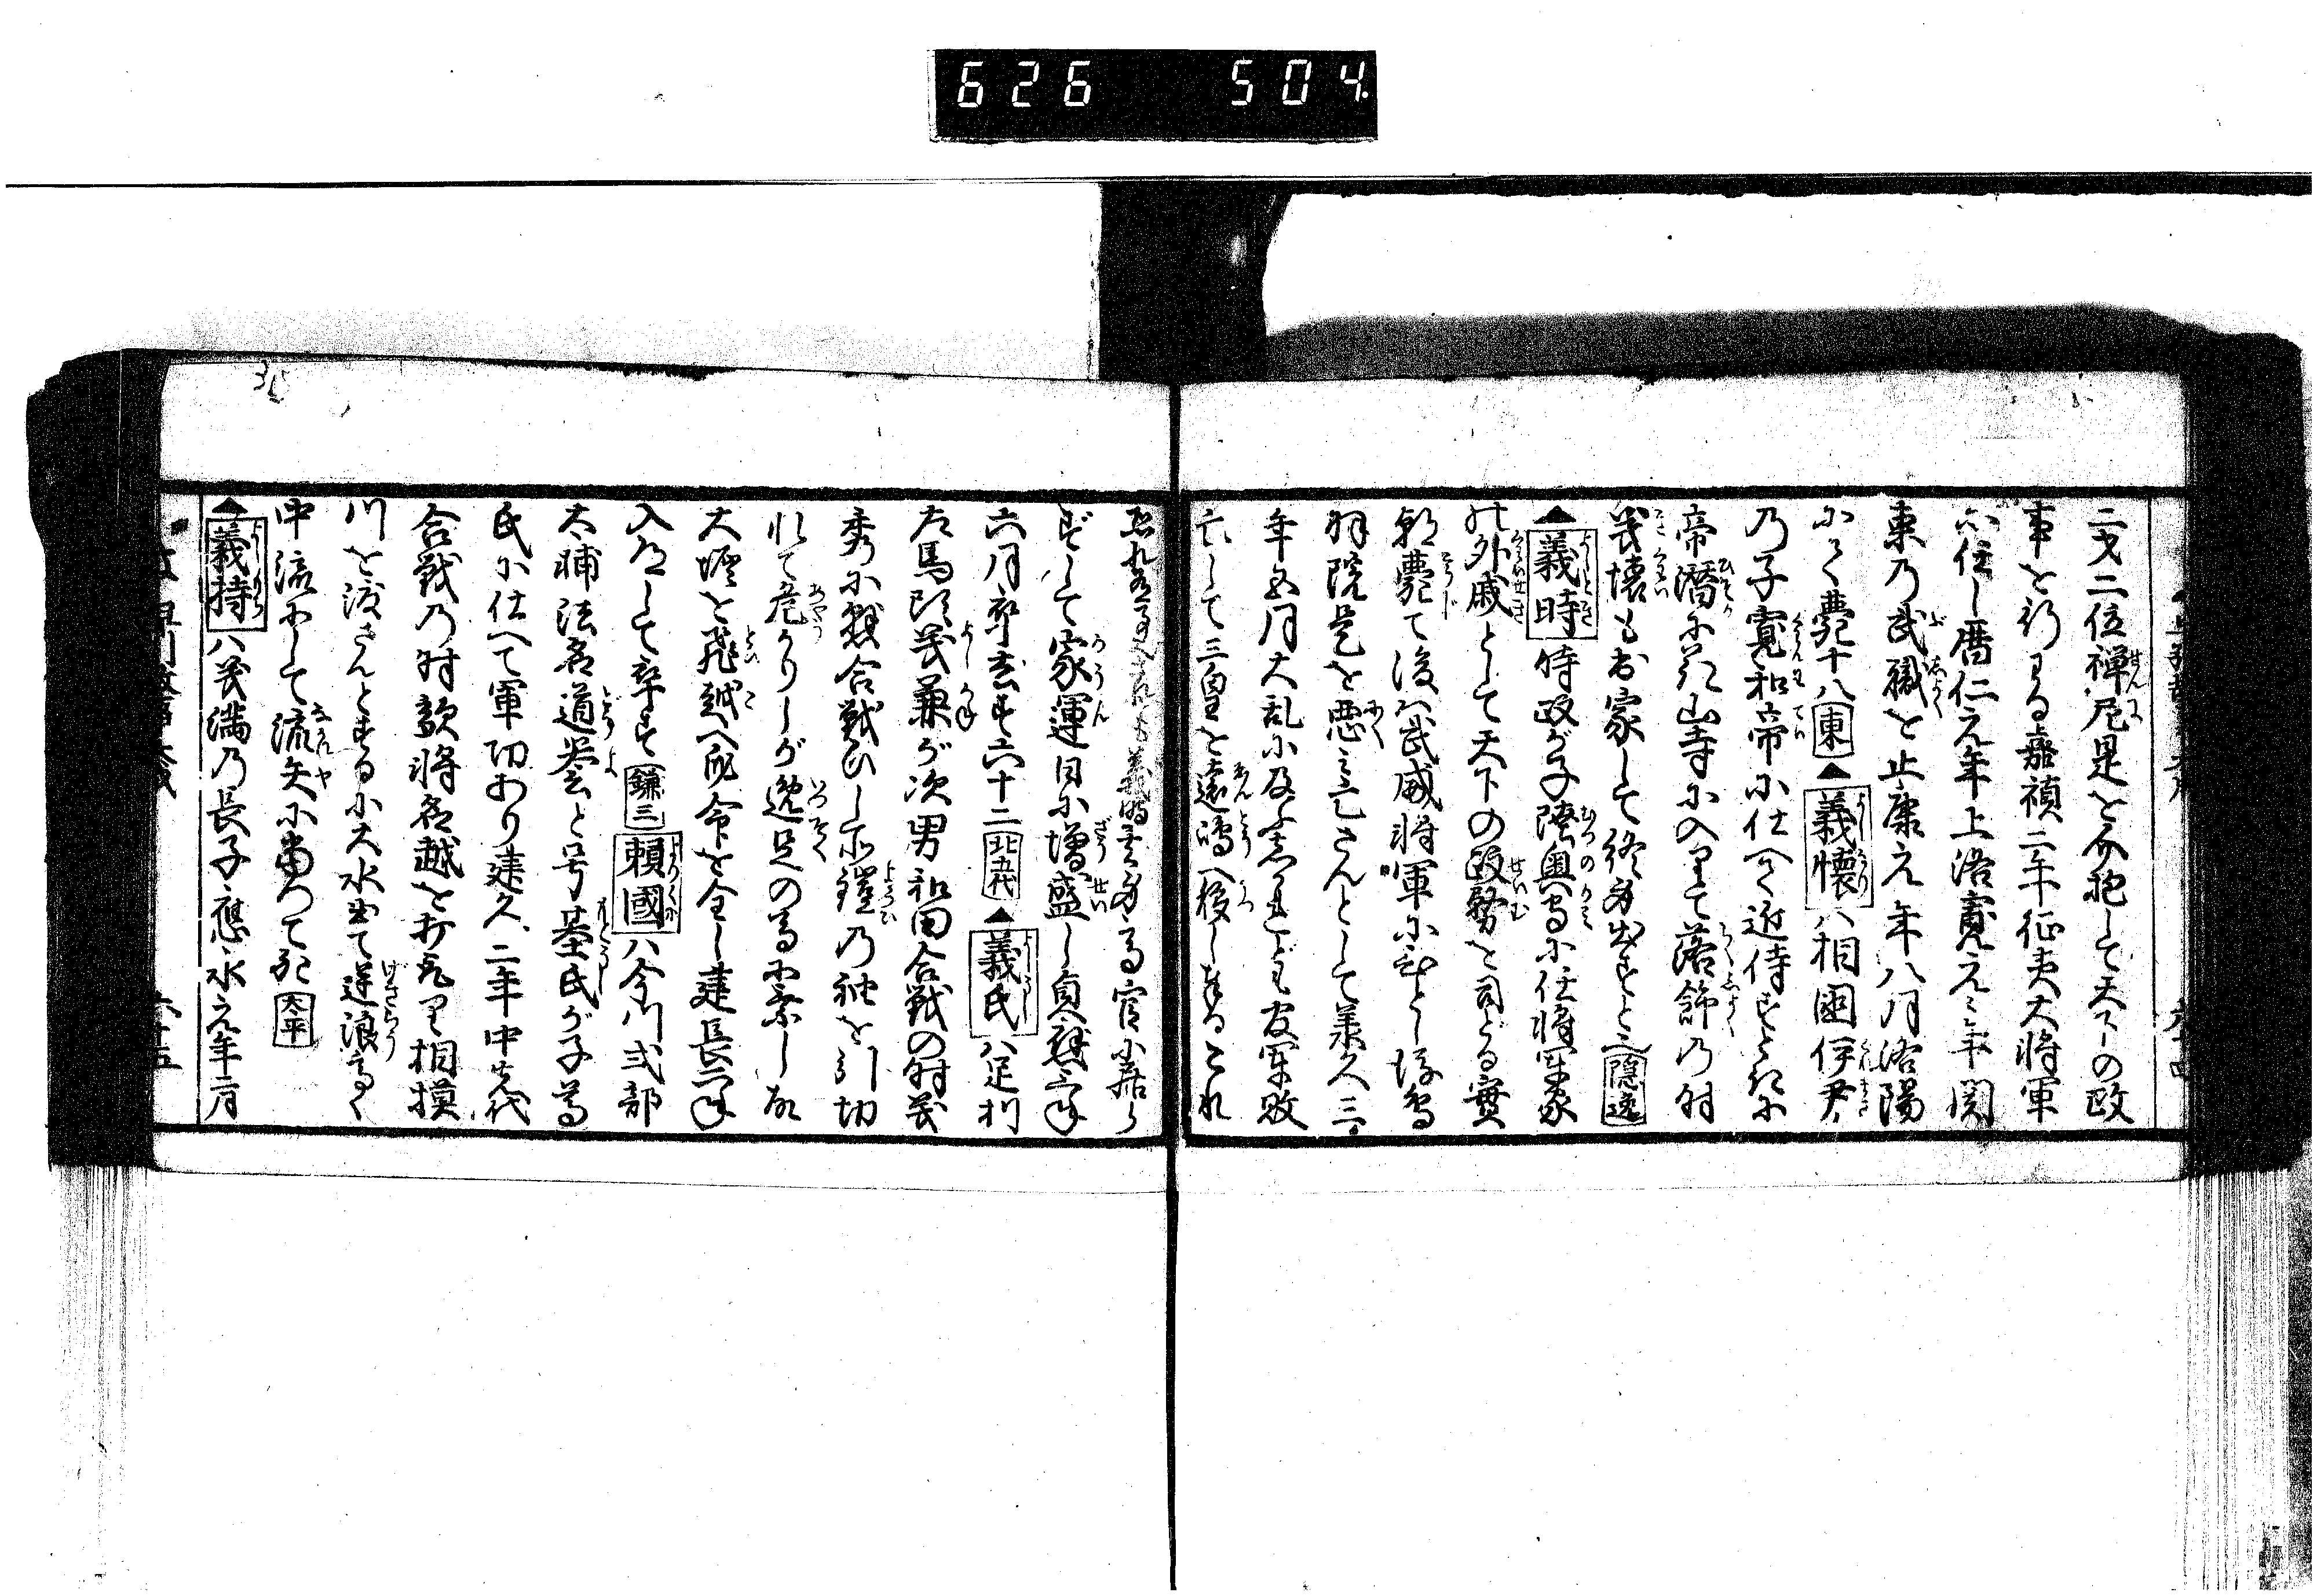 626 504
二才二位禅尼是を介抱して天下の政
事を行わる嘉禎二年征夷大将軍
に任し暦仁元年上洛寛元二年関
東乃武職を止康元年八月洛陽
にて薨十八東▲義懐ハ相国伊尹
乃子寛和帝に仕へて近侍すとゝに
帝潜に花山寺に入りて落飾の時
義懐も出家して終身出ずと云隠逸
▲義時時政が子陸奥守に任将軍家
の外戚として天下の政務を司どる実
朝薨て後ハ武威将軍にひとし後鳥
羽院是を悪亡さんとして承久三
年五月大乱に及ぶといへども官軍敗
亡して三皇を遠嶋へ移し奉るこれ
ずして家運日に増盛し貞応三年
六月卒去す六十二北九代▲義氏ハ足利
左馬頭義兼が次男和田合戦の時義
秀に懸合戦ひし所鎧乃袖を引切
れて危かりしが逸足の馬に乗し故
大堀を飛越へ身命を全し建長六年
入道して卒す鎌三頼國ハ今川式部
太輔法名道誉と号基氏が子尊
氏に仕へて軍功あり建久二年中先代
合戦乃時敵将名越を打取り相摸
川を渡さんとするに大水出て逆浪高く
中流にして流矢に当つて死太平
▲義持ハ義満乃長子應永元年十二月